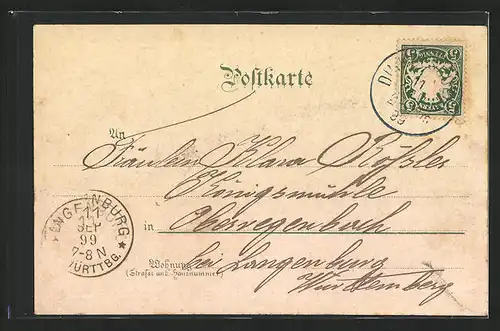 Postkarte
An
Fräulein Klara Rößler
Königsmühle
in Oberregenbach
Wohnung
(Straße und Hausnummer)
bei Langenburg
Württemberg
LANGENBURG
11
SEP
99
7-8 N
WÜRTTBG.
BAYERN
5